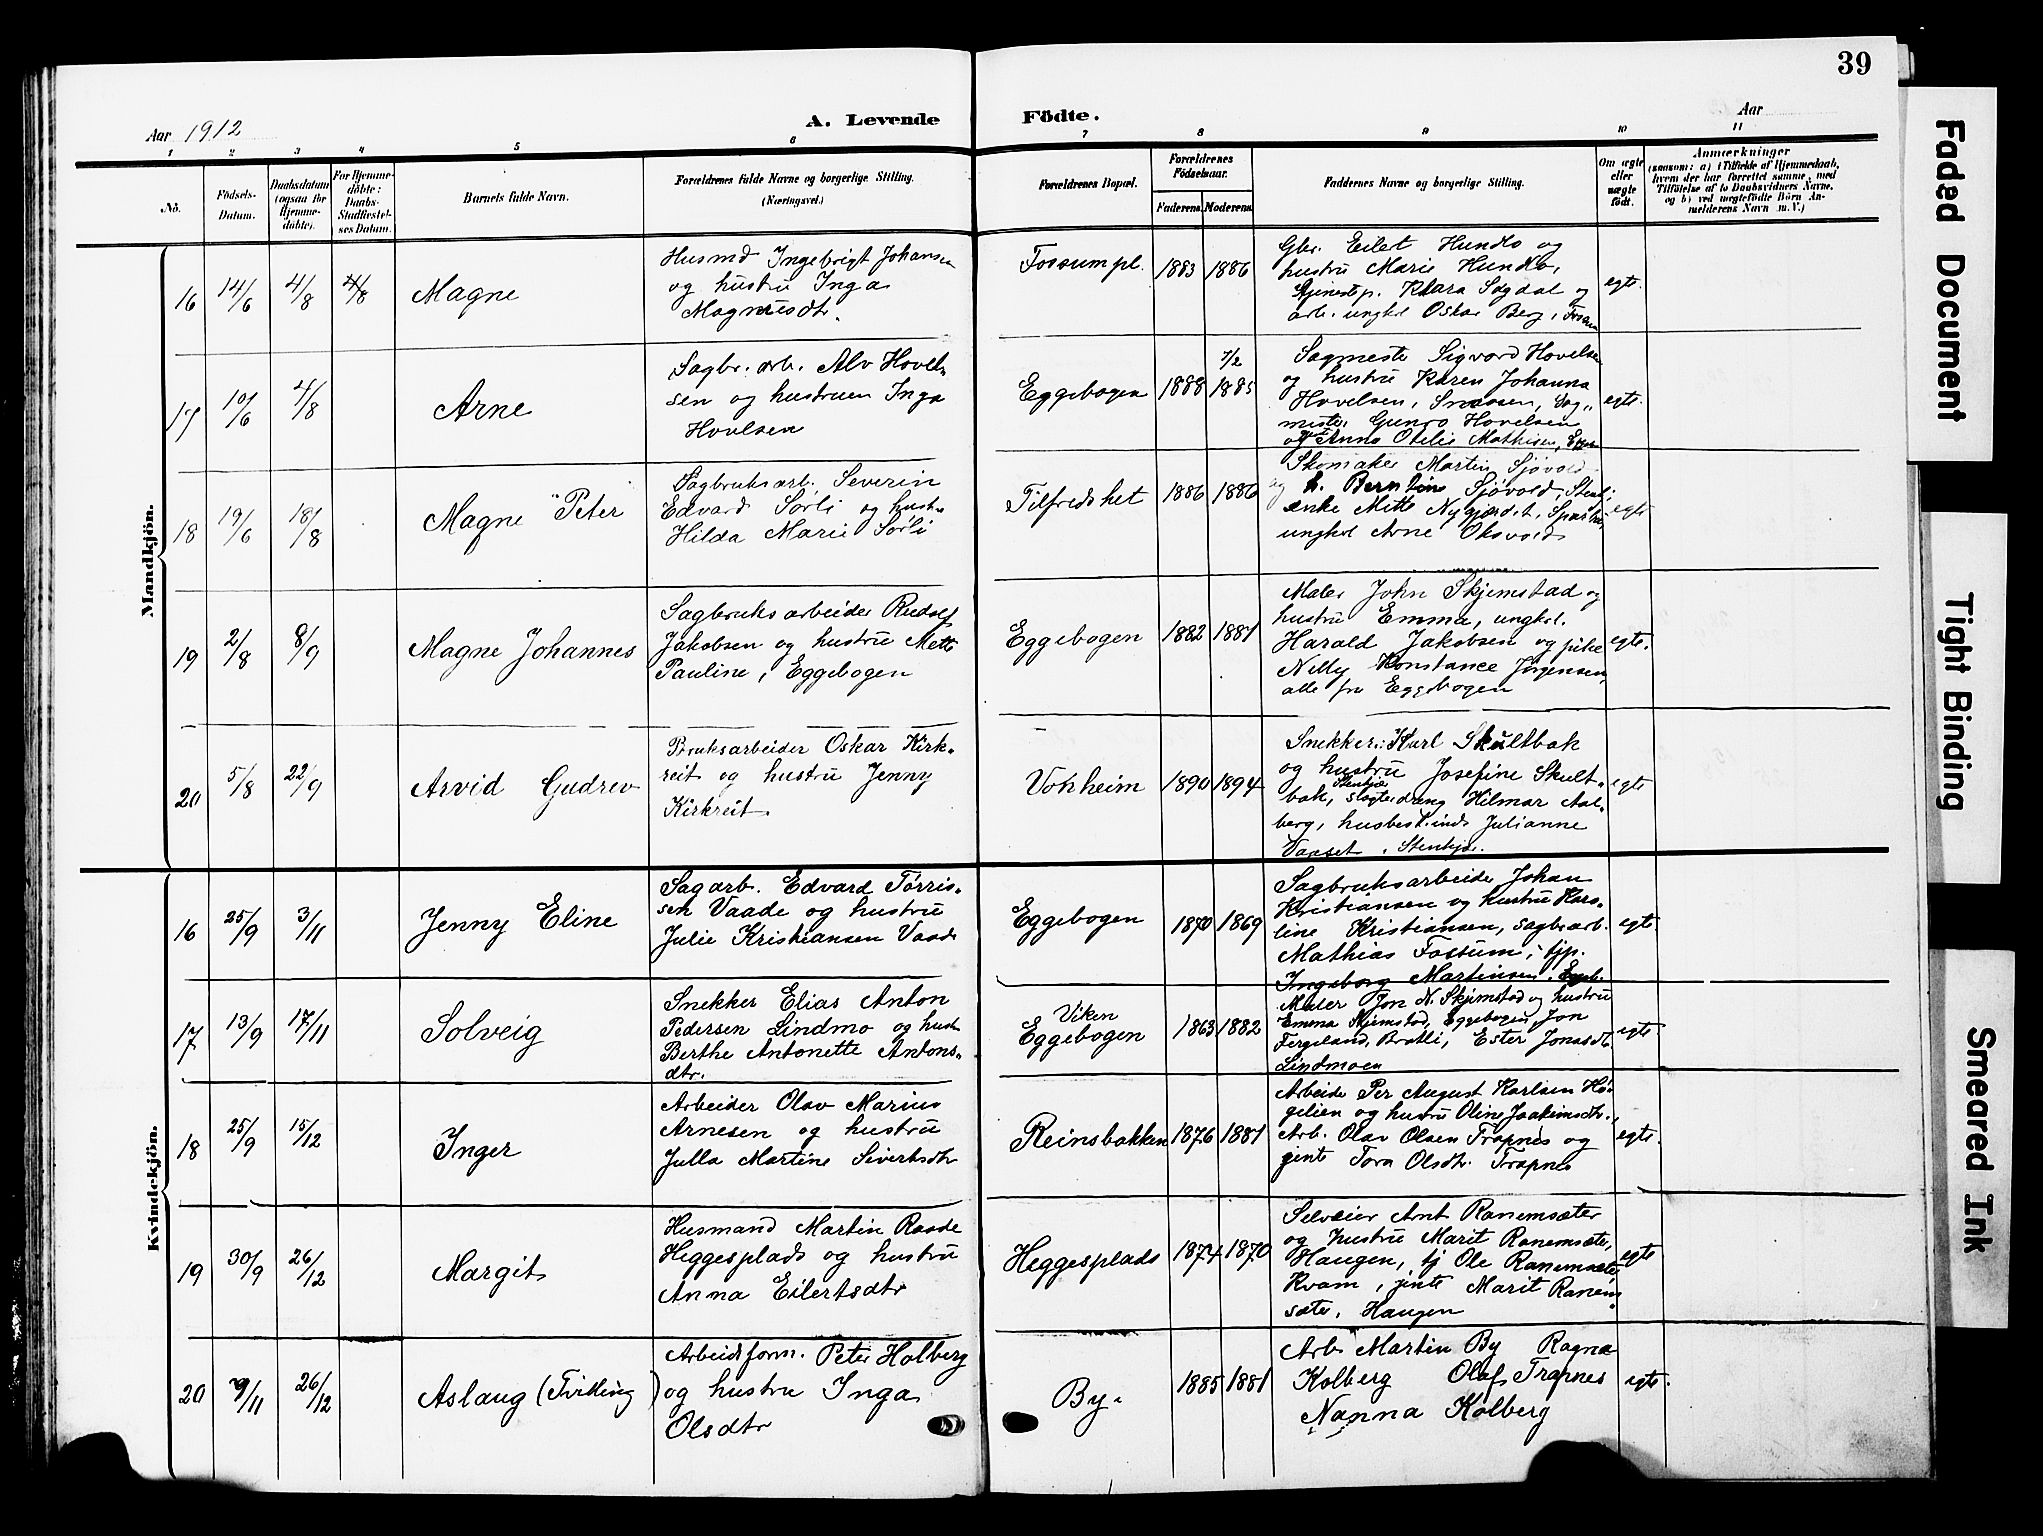 39
Aar 1912
A. Levende
Födte.
Aar
1 2 3 4 5 6 7 8 9 10 11
No.
Födsels-Datum.
Daabsdatum (ogsaa for Hjemmedöbte).
For Hjemmedöbte: Daabs-Stadfæstelses Datum.
Barnets fulde Navn.
Forældrenes fulde Navne og borgerlige Stilling. (Næringsvei.)
Forældrenes Bopæl.
Forældrenes Födselsaar.
Faderens. Moderens.
Faddernes Navne og borgerlige Stilling.
Om ægte eller uægte födt.
Anmærkninger
(saasom: a) i Tilfælde af Hjemmedaab,
hvem der har forrettet samme, med
Tilföielse af to Daabsvidners Navne,
og b) ved uægtefödte Börn Anmelderens Navn m. V.)
Mandkjön.
16 14/6 4/8 4/8 Magne
Husmd Ingebrigt Johansen
og hustru Inga
Magnusdtr.
Fossumpl. 1883 1886
Gbr. Eilert Hundlo og
hustru Marie Hundlo,
tjenestep. Klara Søgdal og
arb. ungkl Oskar Berg, Fossum
egte.
17 10/6 4/8 Arne
Sagbr. arb. Alv Hovel-
sen og hustruen Inga
Hovelsen
Eggebogen 1888 7/2 1885
Sagmester Sigvard Hovelsen
og hustru Karen Johanna
Hovelsen, Snaasen, Sag-
mester Hovelsen
og Anna Otelie Mathisen, Egge
egte.
18 19/6 18/8 Magne Peter
Sagbruksarb. Severin
Edvard Sørli og hustru
Hilda Marie Sørli
Tilfredshet 1886 1886
Skomaker Martin Sjøvold
og h. Berntine Sjøvold, Stenkj.
enke Mette Nygjerdet, Sparbu,
ungkl Arne Oksvold
egte
19 2/8 8/9 Magne Johannes
Sagbruksarbeider Rudolf
Jakobsen og hustru Mette
Pauline, Eggebogen
Eggebogen 1882 1881
Maler John Skjemstad og
hustru Emma, ungkl.
Harald Jakobsen og pike
Nelly Konstance Jørgensen,
alle fra Eggebogen
egte.
20 5/8 22/9 Arvid Gudrev
Bruksarbeider Oskar Kirk-
reit og hustru Jenny
Kirkreit.
Vohheim 1890 1894
Snekker Karl Skultbak
og hustru Josefine Skult-
bak, Stenkjær slagterdreng Hilmar Aal-
berg, husbest.inde Julianne
Vaaset, Stenkjær.
egte
Kvindekjön.
16 25/9 3/11 Jenny Eline
Sagarb. Edvard Tørris-
sen Vaade og hustru
Julie Kristiansen Vaade
Eggebogen 1870 1869
Sagbruksarbeider Johan
Kristiansen og hustru Karo-
line Kristiansen, sagbrarb.
Mathias Fossum, tjp.
Ingeborg Martinsen, Eggeb.
egte.
17 13/9 17/11 Solveig
Snekker Elias Anton
Pedersen Lindmo og hustr
Berthe Antonette Antons-
dtr.
Viken
Eggebogen 1863 1882
Maler Jon N. Skjemstad og hustru
Emma Skjemstad, Eggebogen, Jon
Fergeland, Bratli, Ester Jonasdtr
Lindmoen
egte
18 25/9 15/12 Inger
Arbeider Olav Marius
Arnesen og hustru
Julla Martine Sivertsdtr
Reinsbakken 1876 1881
Arbeider Per August Karlsen Hø-
gelien og hustru Oline Joakimsdtr.,
Arb. Olav Olsen Trapnes og
jente Tora Olsdtr. Trapnes
egte.
19 30/9 26/12 Margit
Husmand Martin Raade
Heggesplads og hustru
Anna Eilertsdtr
Heggesplads 1874 1870
Selveier Arnt Ranemsæter
og hustru Marit Ranemsæter,
Haugen, tj Ole Ranemsæter
Kvam, jente Marit Ranem-
sæter, Haugen
egte
20 9/11 26/12 Aslaug (Tvilling)
Arbeidsform. Peter Holberg
og hustru Inga
Olsdtr
By. 1885 1881
Arb. Martin By Ragna
Kolberg Olaf Trapnes
Nanna Kolberg
egte.
Faded Document
Tight Binding
Smeared Ink